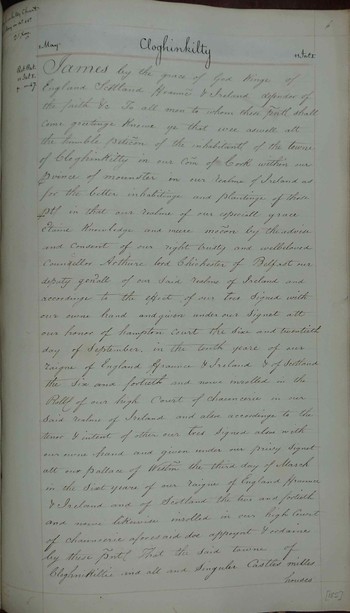 2 May
Cloghinkilty
11 Jac 1
James by the grace of God Kinge of
England Scotland Fraunce & Ireland defender of
the faith &c To all men to whom these shall
come greetinge Knowe ye that wee aswell att
the humble peticon of the inhabitants of the towne
of Cloghinkilty in our County of Cork within our
Province of mounster in our Realme of Ireland as
for the better inhabitinge and plantinge of those
in that our Realme of our especiall grace
certaine knowledge and meere mocion by the advice
and consent of our right trusty and welbeloved
Councellor Arthure lord Chichester of Belfast our
deputy genall of our said realme of Ireland and
accordinge to the effect of our lres Signed with
our owne hand and given under our Signet att
our honor of hampton Court the Sixe and twentieth
day of September, in the tenth yeare of our
raigne of England Fraunce & Ireland & of Scotland
the Sixe and fortieth and nowe enrolled in the
Rolls of our high Court of chauncerie in our
Said realme of Ireland and also according to the
tenor & intent of other our lres signed alsoe with
our owne hand and given under our privy Signet
att our pallace of Westm the third day of March
in the yeare of our Raigne of England Fraunce
& Ireland and of Scotland the and fortieth
and nowe likewise enrolled in our high Court
of chauncerie aforesaid doe appoynt & ordaine
by these That the said towne of
Cloghnkiltie and all and Singular Castles milles
houses